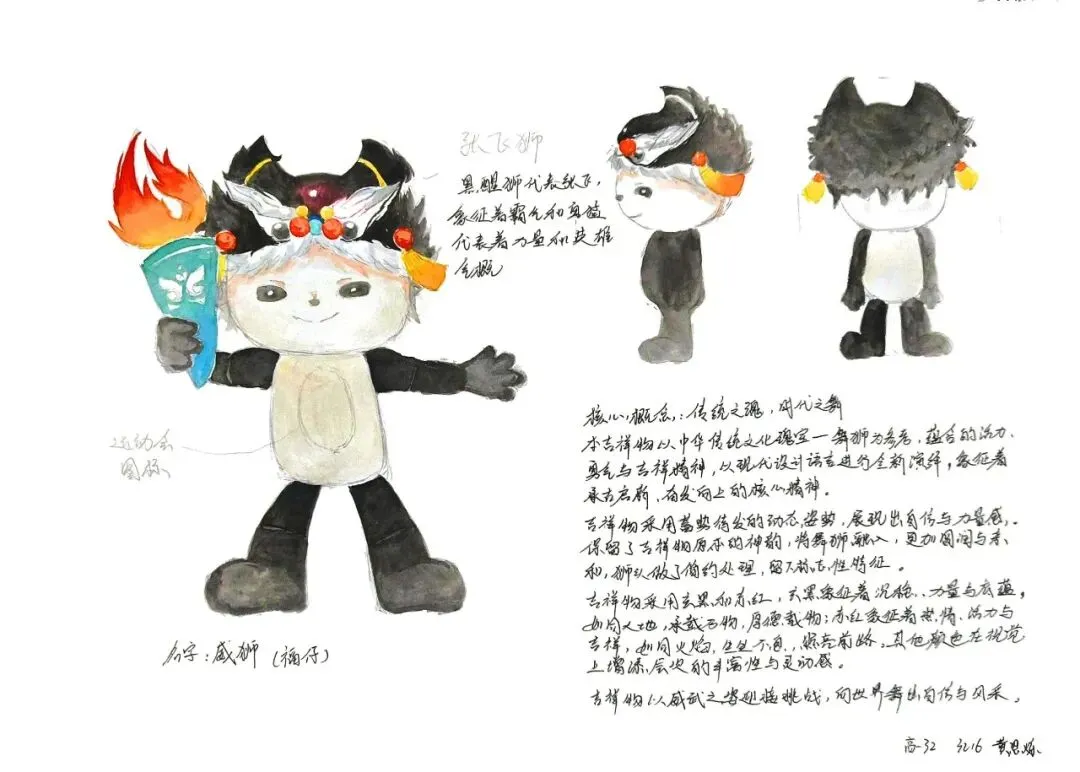 张飞狮
黑醒狮代表张飞,
象征着霸气和勇猛
代表着力量和英雄
气概
运动会
图标
名字:威狮(福仔)
核心概念:传统之魂,时代之舞
本吉祥物以中华传统文化瑰宝一舞狮为参考,蕴含的活力、
勇气与吉祥精神,以现代设计语言进行全新演绎,象征着
承古启新,奋发向上的核心精神。
吉祥物采用蓄势待发的动态姿势,展现出自信与力量感。
保留了吉祥物原本的神韵,将舞狮融入,更加圆润与柔
和,狮头做了简约处理,留下标志性特征。
吉祥物采用玄黑和赤红,玄黑象征着沉稳、力量与底蕴,
如同大地,承载万物,厚德载物;赤红象征着热情、活力与
吉祥,如同火焰,生生不息,照亮前路,其他颜色在视觉
上增添层次的丰富性与灵动感。
吉祥物以威武之姿迎接挑战,向世界舞出自信与风采。
高-32 3216 黄思